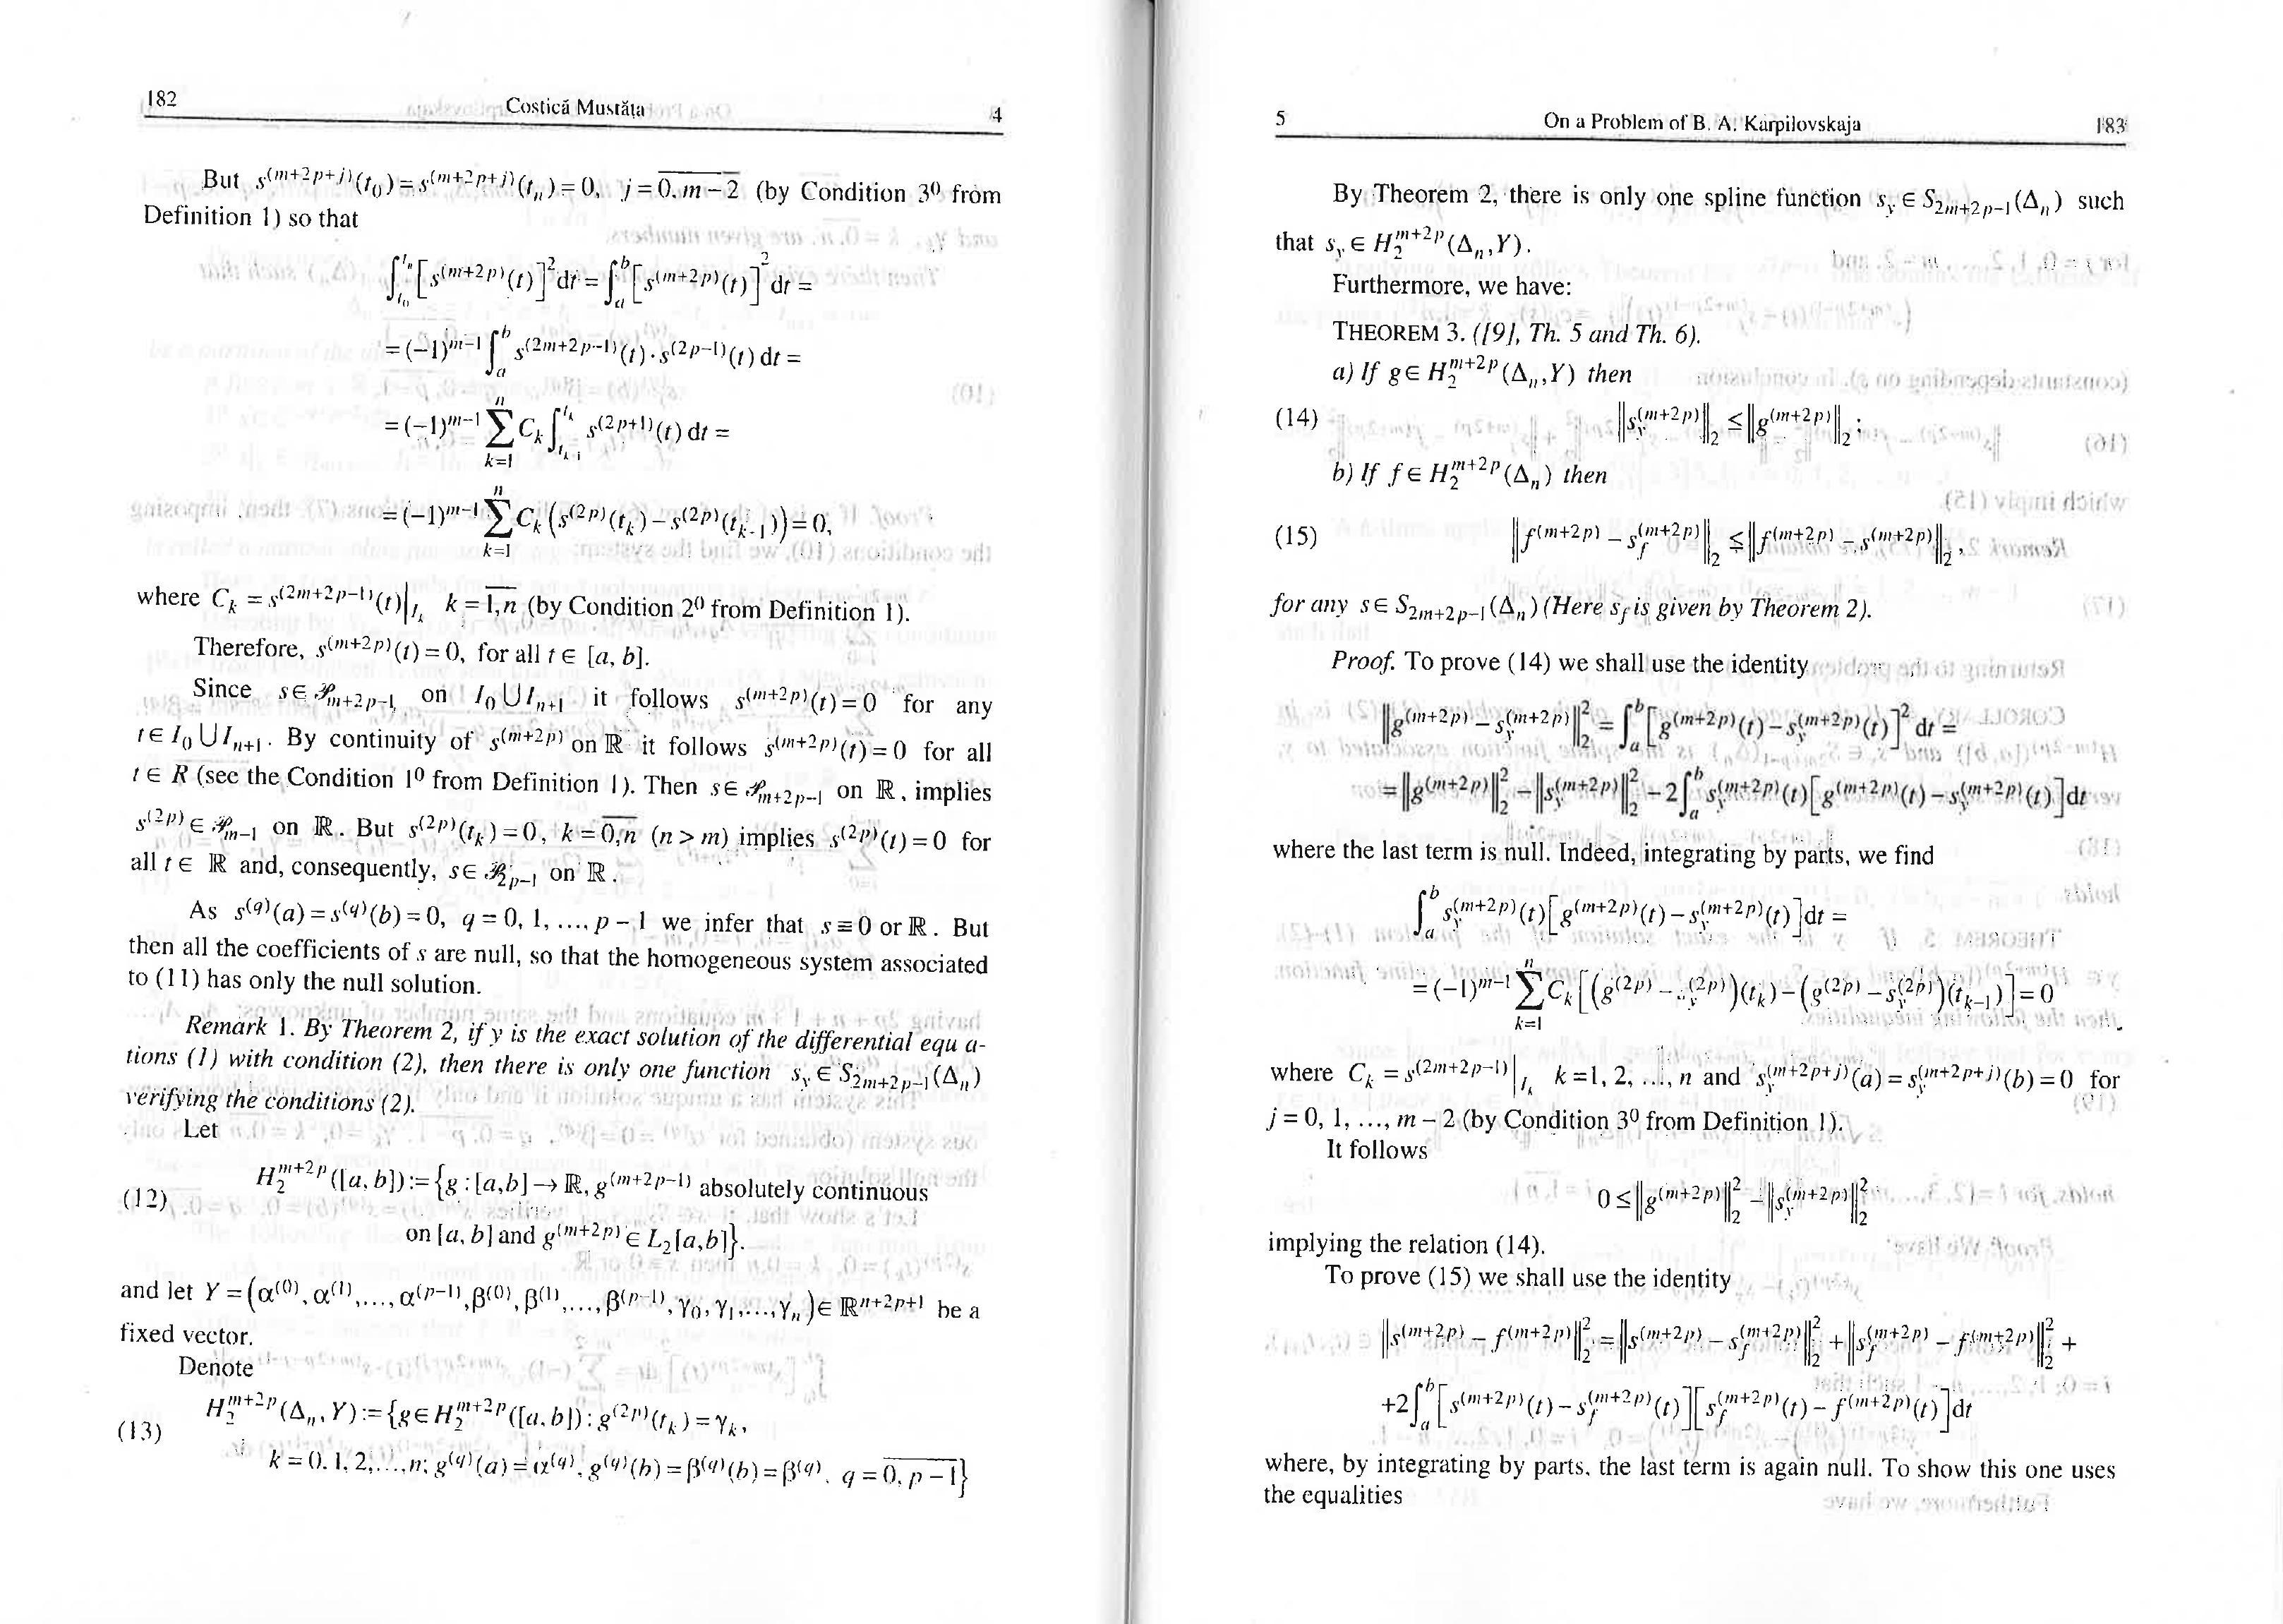 182 Costică Mustăţa 4
But s^{(m+2p+j)}(t_0) = s^{(m+2p+j)}(t_n) = 0, j = \overline{0, m-2} (by Condition 3^0 from
Definition 1) so that
\int_{t_0}^{t_n} [s^{(m+2p)}(t)]^2 dt = \int_a^b [s^{(m+2p)}(t)]^2 dt =
= (-1)^{m-1} \int_a^b s^{(2m+2p-1)}(t) \cdot s^{(2p-1)}(t) dt =
= (-1)^{m-1} \sum_{k=1}^n C_k \int_{t_{k-1}}^{t_k} s^{(2p+1)}(t) dt =
= (-1)^{m-1} \sum_{k=1}^n C_k (s^{(2p)}(t_k) - s^{(2p)}(t_{k-1})) = 0,
where C_k = s^{(2m+2p-1)}(t)|_{I_k} k = \overline{1,n} (by Condition 2^0 from Definition 1).
Therefore, s^{(m+2p)}(t) = 0, for all t ∈ [a, b].
Since s ∈ 𝒫_{m+2p-1} on I_0 ∪ I_{n+1} it follows s^{(m+2p)}(t) = 0 for any
t ∈ I_0 ∪ I_{n+1}. By continuity of s^{(m+2p)} on ℝ it follows s^{(m+2p)}(t) = 0 for all
t ∈ R (see the Condition 1^0 from Definition 1). Then s ∈ 𝒫_{m+2p-1} on ℝ, implies
s^{(2p)} ∈ 𝒫_{m-1} on ℝ. But s^{(2p)}(t_k) = 0, k = \overline{0,n} (n > m) implies s^{(2p)}(t) = 0 for
all t ∈ ℝ and, consequently, s ∈ 𝒫_{2p-1} on ℝ.
As s^{(q)}(a) = s^{(q)}(b) = 0, q = 0, 1, ..., p – 1 we infer that s ≡ 0 or ℝ. But
then all the coefficients of s are null, so that the homogeneous system associated
to (11) has only the null solution.
Remark 1. By Theorem 2, if y is the exact solution of the differential equ a-
tions (1) with condition (2), then there is only one function s_y ∈ S_{2m+2p-1}(Δ_n)
verifying the conditions (2).
Let
(12) H_2^{m+2p}([a, b]) := {g : [a,b] → ℝ, g^{(m+2p-1)} absolutely continuous
on [a, b] and g^{(m+2p)} ∈ L_2[a,b]}.
and let Y = (α^{(0)}, α^{(1)}, ..., α^{(p-1)}, β^{(0)}, β^{(1)}, ..., β^{(p-1)}, γ_0, γ_1, ..., γ_n) ∈ ℝ^{n+2p+1} be a
fixed vector.
Denote
(13) H_2^{m+2p}(Δ_n, Y) := {g ∈ H_2^{m+2p}([a, b]) : g^{(2p)}(t_k) = γ_k,
k = 0, 1, 2, ..., n; g^{(q)}(a) = α^{(q)}, g^{(q)}(b) = β^{(q)}(b) = β^{(q)}, q = \overline{0, p-1}}
5 On a Problem of B. A. Karpilovskaja 183
By Theorem 2, there is only one spline function s_y ∈ S_{2m+2p-1}(Δ_n) such
that s_y ∈ H_2^{m+2p}(Δ_n, Y).
Furthermore, we have:
THEOREM 3. ([9], Th. 5 and Th. 6).
a) If g ∈ H_2^{m+2p}(Δ_n, Y) then
(14) ‖s_y^{(m+2p)}‖_2 ≤ ‖g^{(m+2p)}‖_2;
b) If f ∈ H_2^{m+2p}(Δ_n) then
(15) ‖f^{(m+2p)} – s_f^{(m+2p)}‖_2 ≤ ‖f^{(m+2p)} – s^{(m+2p)}‖_2,
for any s ∈ S_{2m+2p-1}(Δ_n) (Here s_f is given by Theorem 2).
Proof. To prove (14) we shall use the identity
‖g^{(m+2p)} – s_y^{(m+2p)}‖_2^2 = \int_a^b [g^{(m+2p)}(t) – s_y^{(m+2p)}(t)]^2 dt =
= ‖g^{(m+2p)}‖_2^2 – ‖s_y^{(m+2p)}‖_2^2 – 2\int_a^b s_y^{(m+2p)}(t)[g^{(m+2p)}(t) – s_y^{(m+2p)}(t)]dt
where the last term is null. Indeed, integrating by parts, we find
\int_a^b s_y^{(m+2p)}(t)[g^{(m+2p)}(t) – s_y^{(m+2p)}(t)]dt =
= (-1)^{m-1} \sum_{k=1}^n C_k [(g^{(2p)} – s_y^{(2p)})(t_k) – (g^{(2p)} – s_y^{(2p)})(t_{k-1})] = 0
where C_k = s^{(2m+2p-1)}|_{I_k} k = 1, 2, ..., n and s_y^{(m+2p+j)}(a) = s_y^{(m+2p+j)}(b) = 0 for
j = 0, 1, ..., m – 2 (by Condition 3^0 from Definition 1).
It follows
0 ≤ ‖g^{(m+2p)}‖_2^2 – ‖s_y^{(m+2p)}‖_2^2
implying the relation (14).
To prove (15) we shall use the identity
‖s^{(m+2p)} – f^{(m+2p)}‖_2^2 = ‖s^{(m+2p)} – s_f^{(m+2p)}‖_2^2 + ‖s_f^{(m+2p)} – f^{(m+2p)}‖_2^2 +
+2\int_a^b [s^{(m+2p)}(t) – s_f^{(m+2p)}(t)][s_f^{(m+2p)}(t) – f^{(m+2p)}(t)]dt
where, by integrating by parts, the last term is again null. To show this one uses
the equalities